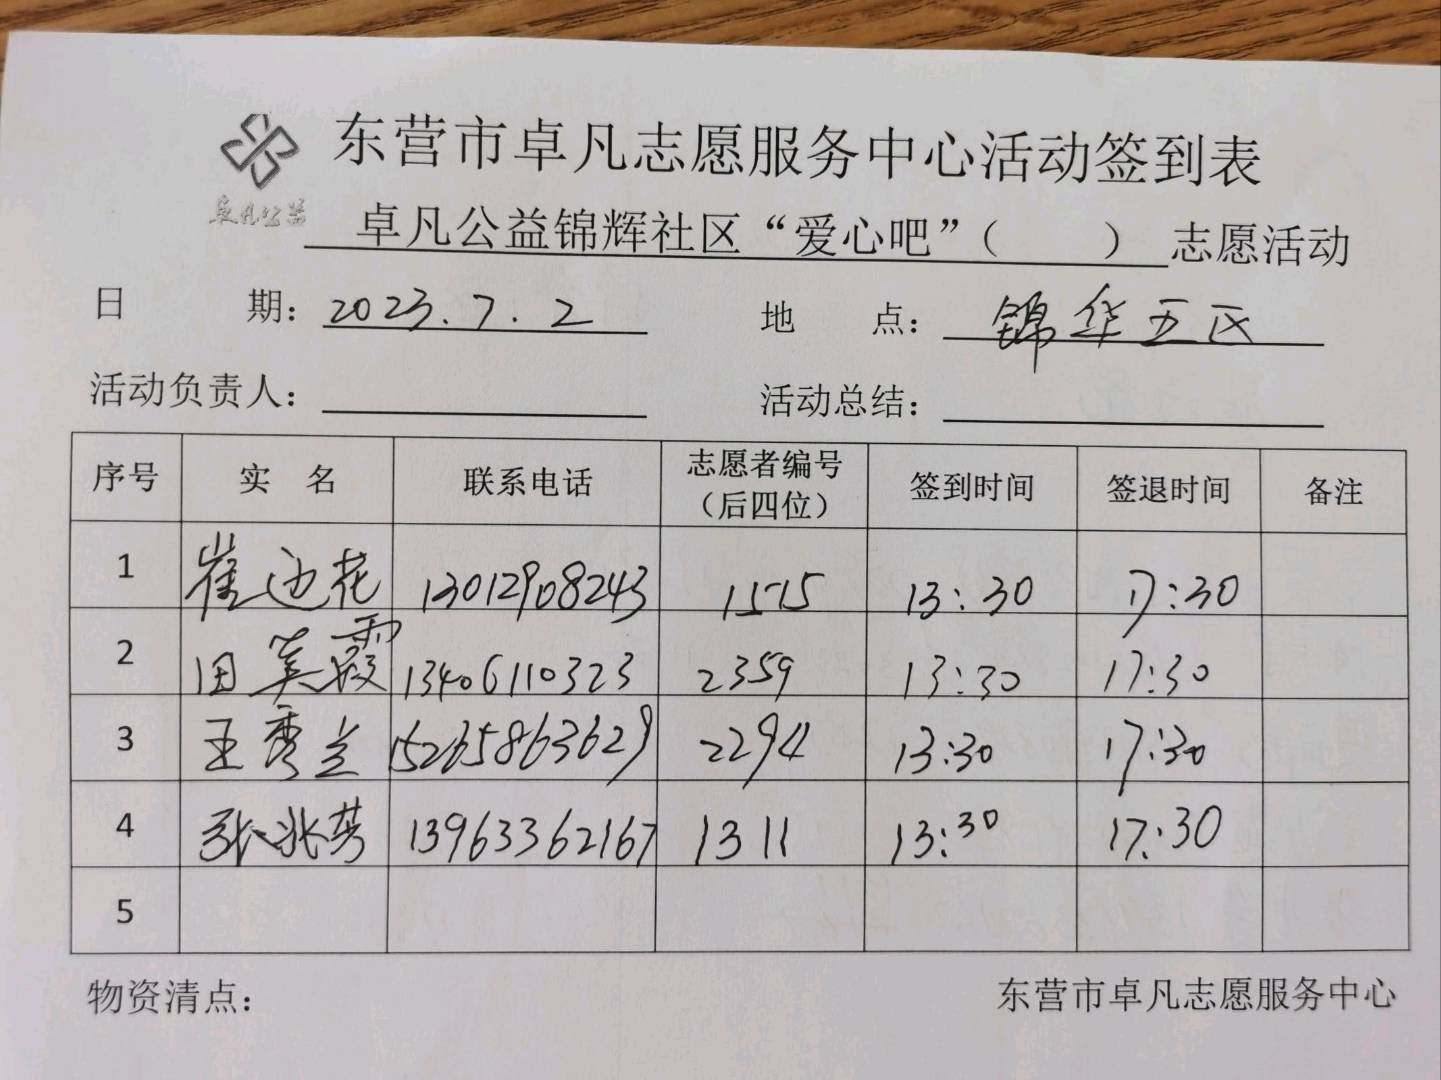 东营市卓凡志愿服务中心活动签到表
卓凡公益
卓凡公益锦辉社区“爱心吧”（ ）志愿活动
日 期：2023.7.2 地 点：锦华五区
活动负责人： 活动总结：
序号 实 名 联系电话 志愿者编号（后四位） 签到时间 签退时间 备注
1 崔迎花 13012908243 1575 13:30 17:30
2 田美霞 13406110323 2359 13:30 17:30
3 王秀兰 15265863629 2294 13:30 17:30
4 张兆芳 13963362167 1311 13:30 17:30
5
物资清点： 东营市卓凡志愿服务中心